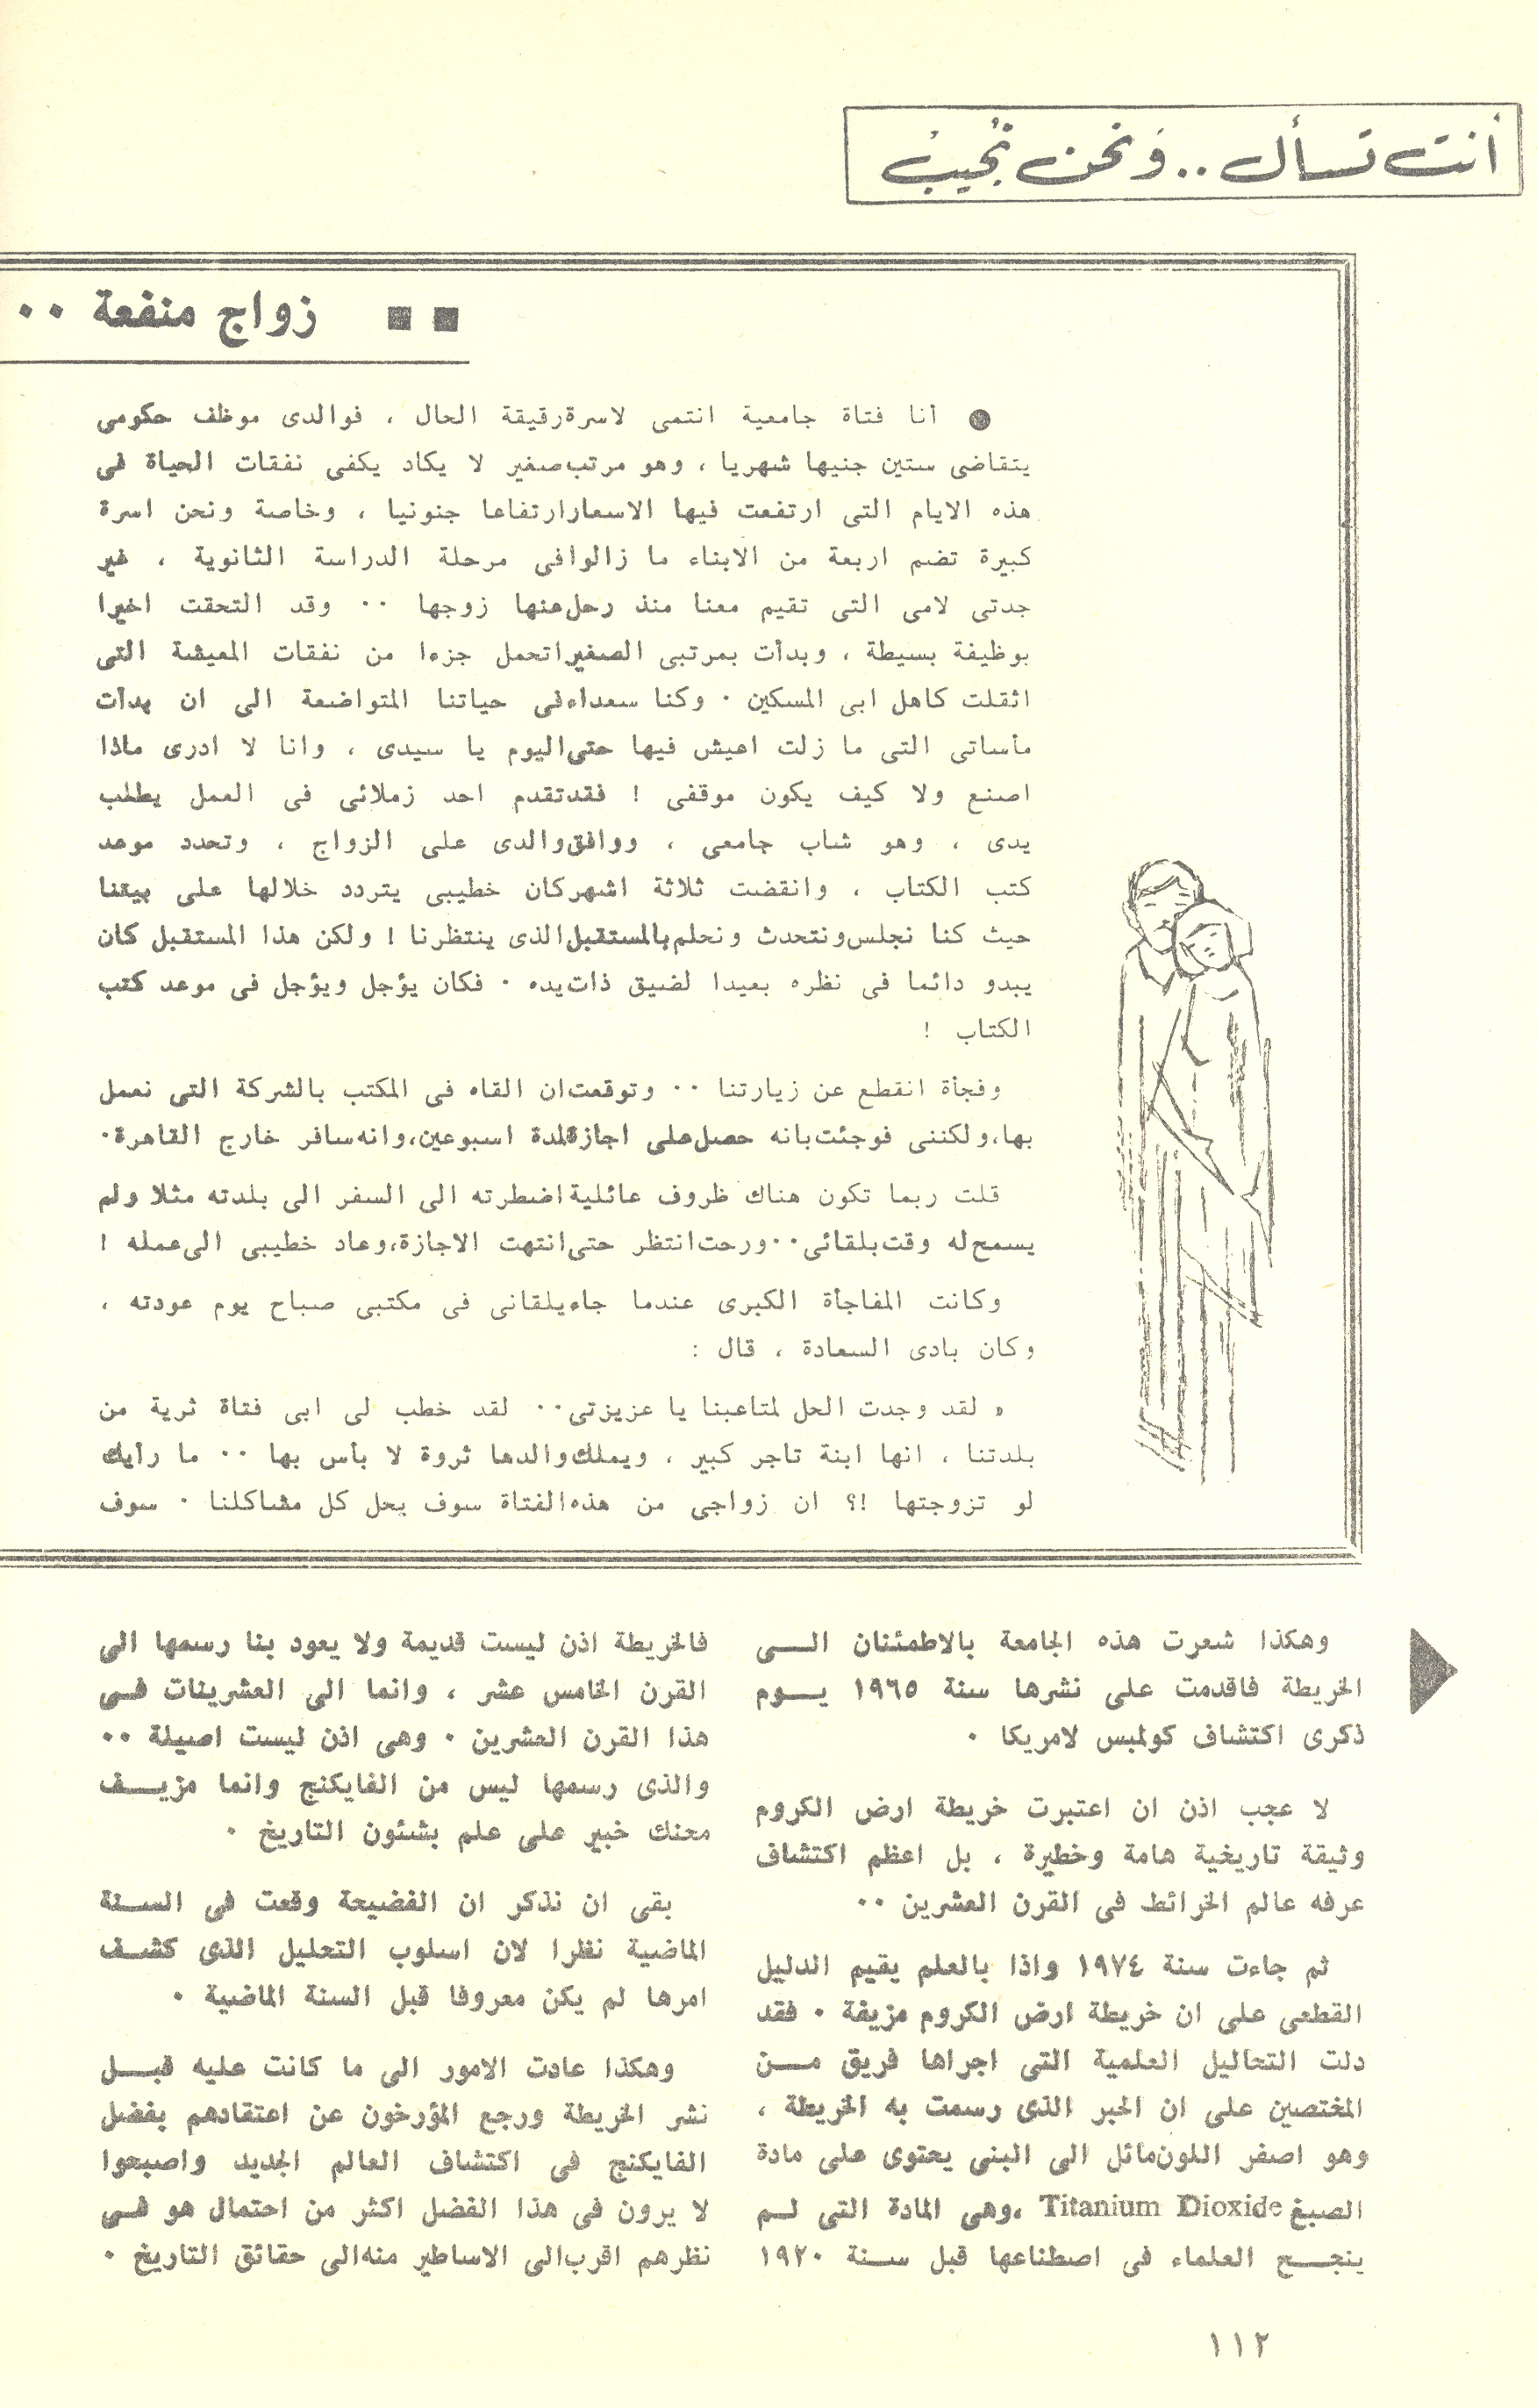 أنت تسأل .. ونحن نجيب
■ ■ زواج منفعة ٠٠
● أنا فتاة جامعية انتمى لاسرة رقيقة الحال ، فوالدى موظف حكومى
يتقاضى ستين جنيها شهريا ، وهو مرتب صغير لا يكاد يكفى نفقات الحياة فى
هذه الايام التى ارتفعت فيها الاسعار ارتفاعا جنونيا ، وخاصة ونحن اسرة
كبيرة تضم اربعة من الابناء ما زالوا فى مرحلة الدراسة الثانوية ، غير
جدتى لامى التى تقيم معنا منذ رحل عنها زوجها ٠٠ وقد التحقت اخيرا
بوظيفة بسيطة ، وبدأت بمرتبى الصغير اتحمل جزءا من نفقات المعيشة التى
اثقلت كاهل ابى المسكين ٠ وكنا سعداء فى حياتنا المتواضعة الى ان بدأت
مأساتى التى ما زلت اعيش فيها حتى اليوم يا سيدى ، وانا لا ادرى ماذا
اصنع ولا كيف يكون موقفى ! فقد تقدم احد زملائى فى العمل يطلب
يدى ، وهو شاب جامعى ، ووافق والدى على الزواج ، وتحدد موعد
كتب الكتاب ، وانقضت ثلاثة اشهر كان خطيبى يتردد خلالها على بيتنا
حيث كنا نجلس ونتحدث ونحلم بالمستقبل الذى ينتظرنا ! ولكن هذا المستقبل كان
يبدو دائما فى نظره بعيدا لضيق ذات يده ٠ فكان يؤجل ويؤجل فى موعد كتب
الكتاب !
وفجأة انقطع عن زيارتنا ٠٠ وتوقعت ان القاه فى المكتب بالشركة التى نعمل
بها، ولكننى فوجئت بانه حصل على اجازة لمدة اسبوعين، وانه سافر خارج القاهرة٠
قلت ربما تكون هناك ظروف عائلية اضطرته الى السفر الى بلدته مثلا ولم
يسمح له وقت بلقائى ٠٠ ورحت انتظر حتى انتهت الاجازة، وعاد خطيبى الى عمله !
وكانت المفاجأة الكبرى عندما جاء يلقانى فى مكتبى صباح يوم عودته ،
وكان بادى السعادة ، قال :
« لقد وجدت الحل لمتاعبنا يا عزيزتى ٠٠ لقد خطب لى ابى فتاة ثرية من
بلدتنا ، انها ابنة تاجر كبير ، ويملك والدها ثروة لا بأس بها ٠٠ ما رأيك
لو تزوجتها !؟ ان زواجى من هذه الفتاة سوف يحل كل مشاكلنا ٠ سوف
وهكذا شعرت هذه الجامعة بالاطمئنان الى
الخريطة فاقدمت على نشرها سنة ١٩٦٥ يوم
ذكرى اكتشاف كولمبس لامريكا ٠
لا عجب اذن ان اعتبرت خريطة ارض الكروم
وثيقة تاريخية هامة وخطيرة ، بل اعظم اكتشاف
عرفه عالم الخرائط فى القرن العشرين ٠٠
ثم جاءت سنة ١٩٧٤ واذا بالعلم يقيم الدليل
القطعى على ان خريطة ارض الكروم مزيفة ٠ فقد
دلت التحاليل العلمية التى اجراها فريق من
المختصين على ان الحبر الذى رسمت به الخريطة ،
وهو اصفر اللون مائل الى البنى يحتوى على مادة
الصبغ Titanium Dioxide ، وهى المادة التى لم
ينجح العلماء فى اصطناعها قبل سنة ١٩٢٠
فالخريطة اذن ليست قديمة ولا يعود بنا رسمها الى
القرن الخامس عشر ، وانما الى العشرينات فى
هذا القرن العشرين ٠ وهى اذن ليست اصيلة ٠٠
والذى رسمها ليس من الفايكنج وانما مزيف
محنك خبير على علم بشئون التاريخ ٠
بقى ان نذكر ان الفضيحة وقعت فى السنة
الماضية نظرا لان اسلوب التحليل الذى كشف
امرها لم يكن معروفا قبل السنة الماضية ٠
وهكذا عادت الامور الى ما كانت عليه قبل
نشر الخريطة ورجع المؤرخون عن اعتقادهم بفضل
الفايكنج فى اكتشاف العالم الجديد واصبحوا
لا يرون فى هذا الفضل اكثر من احتمال هو فى
نظرهم اقرب الى الاساطير منه الى حقائق التاريخ ٠
١١٢